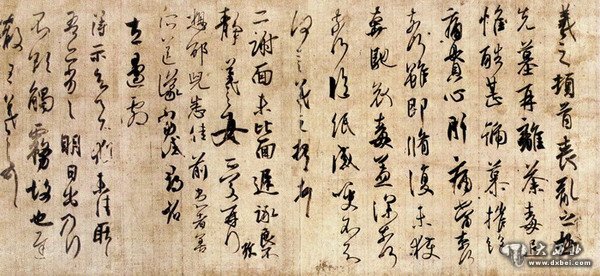 羲之頓首喪亂之極
先墓再離荼毒追
惟酷甚號慕摧絕
痛貫心肝痛當奈何
奈何雖即脩復未獲
奔馳哀毒益深奈何
奈何臨紙感哽不知
何言羲之頓首頓首
二謝面未比面遲詠良
靜羲之女愛再拜
想邵兒悉佳前患者善
左邊劇
得示知足下猶未佳耿
吾亦劣劣明日出乃行
不欲觸霧故也遲
散王羲之頓首
大西北
www.dxbei.com